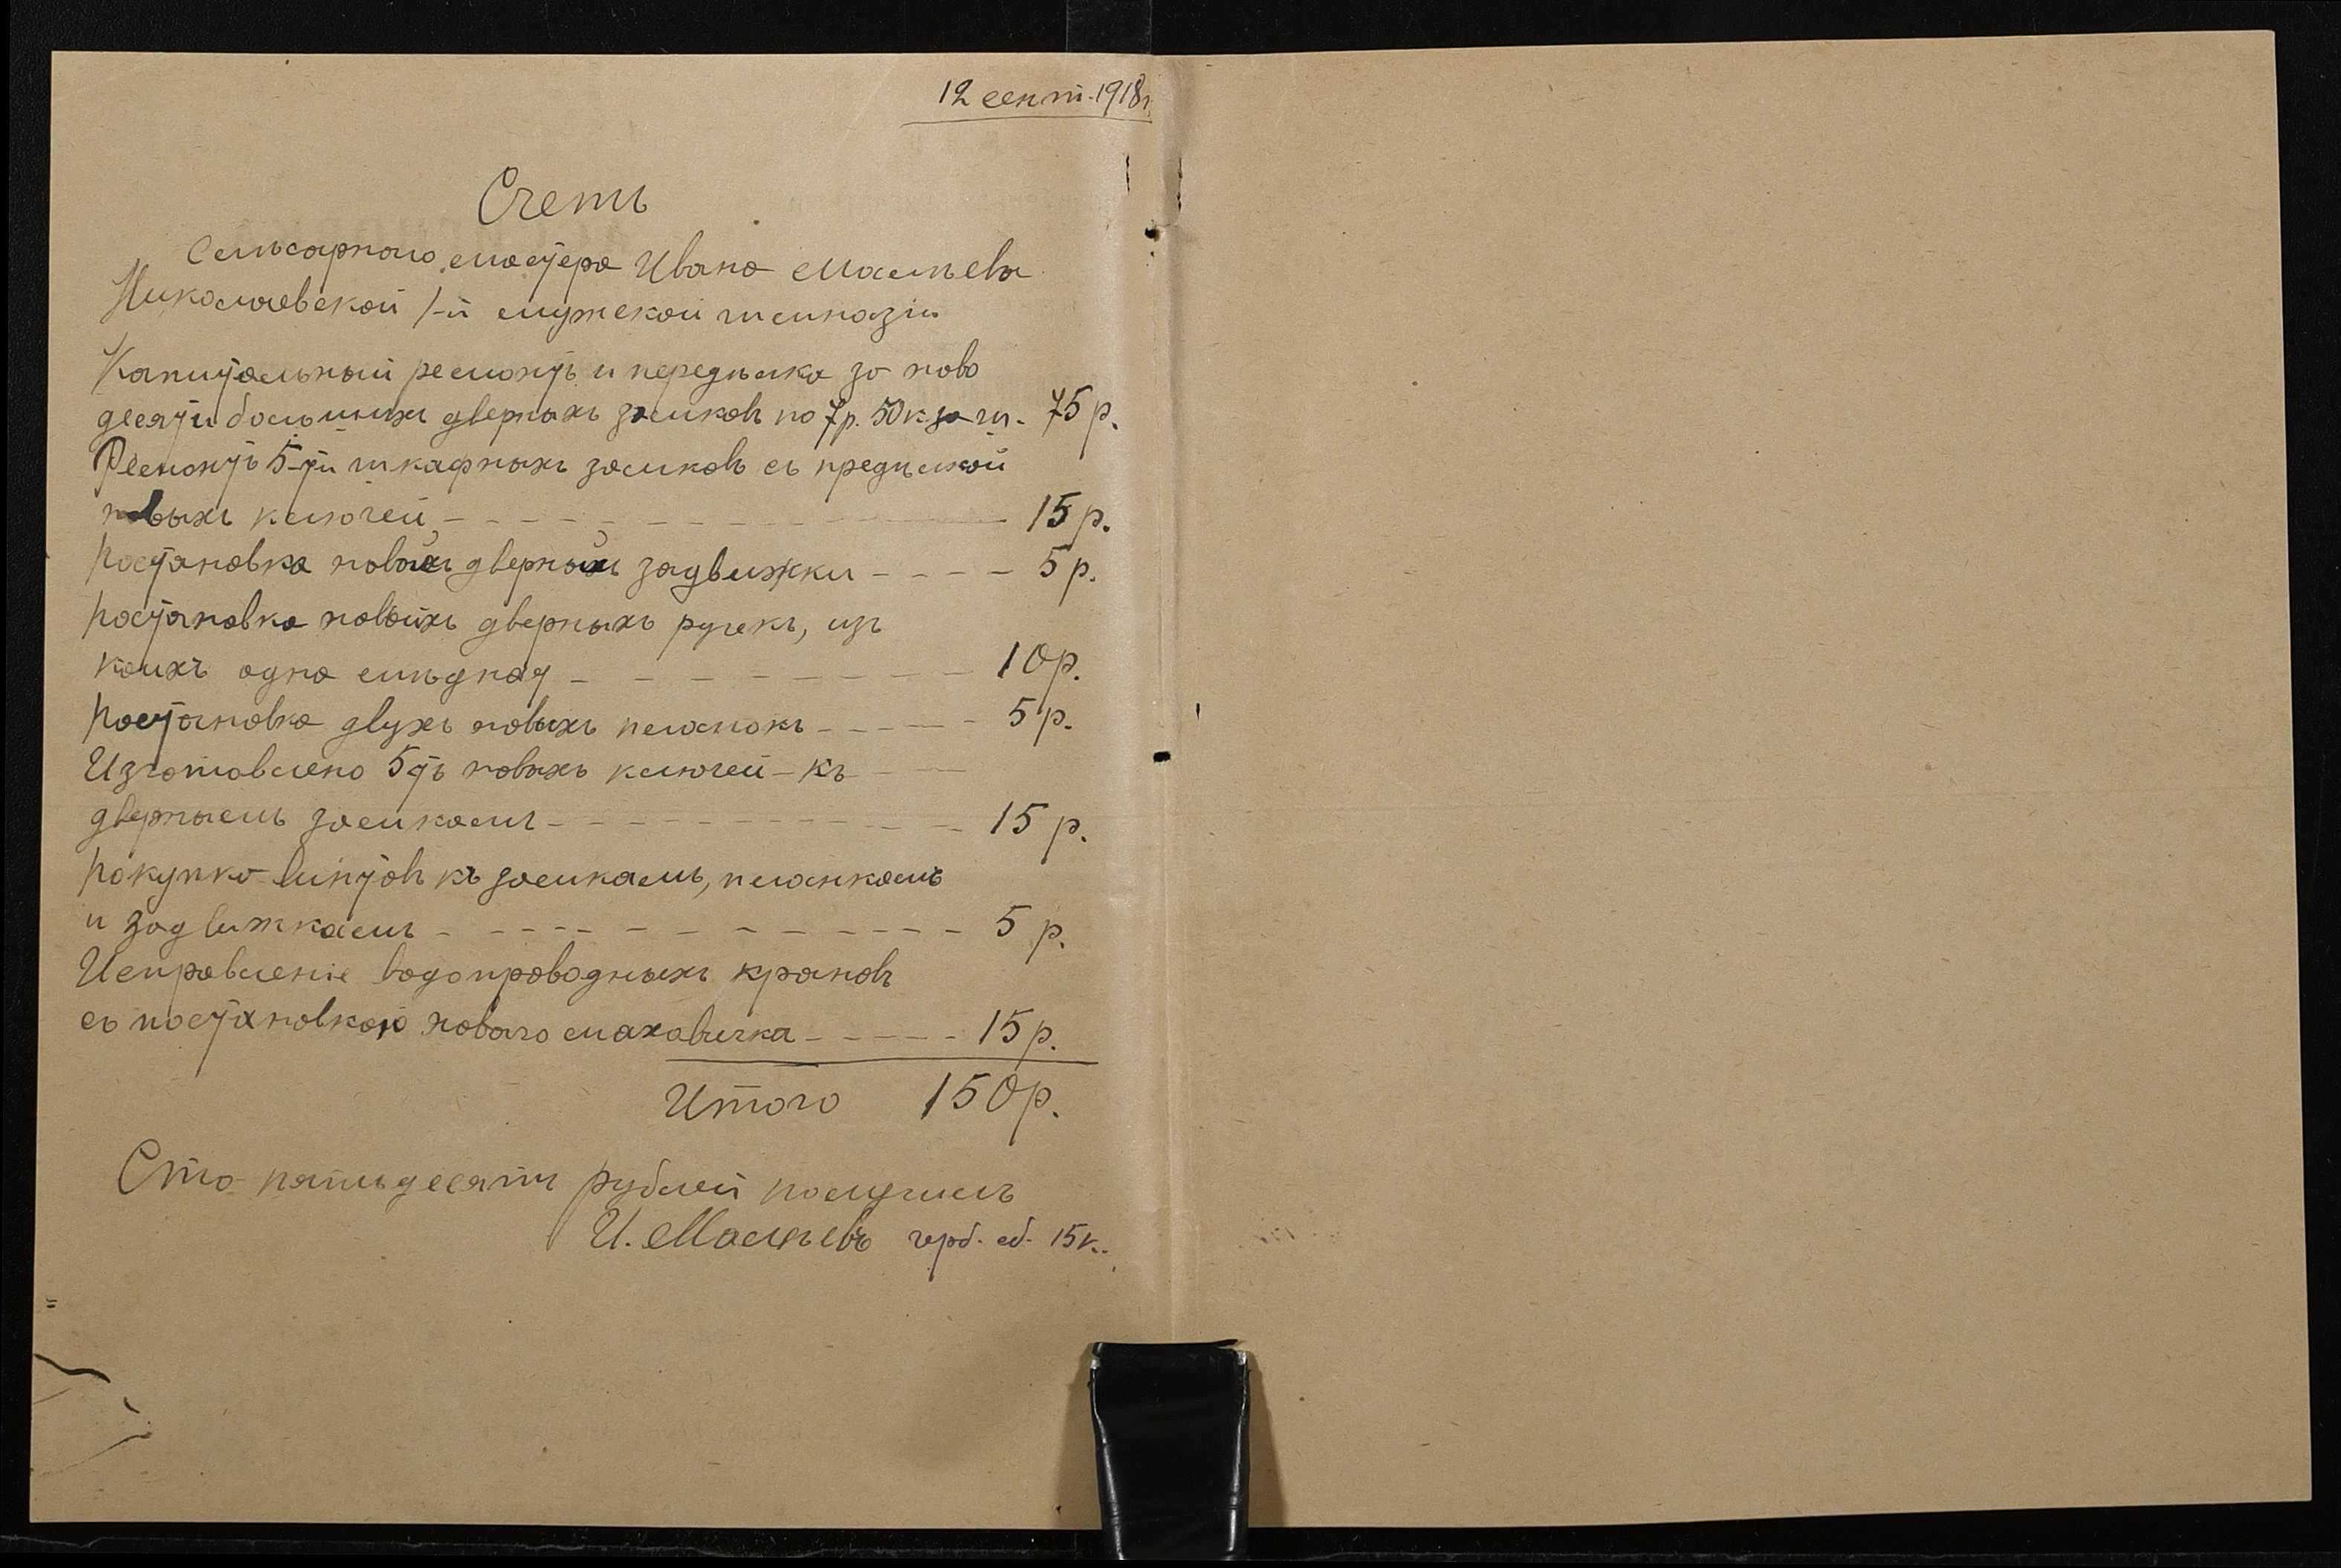 12 сент. 1918 г.
Счетъ
Слѣсарного мастера Ивана
Николаевской 1-й мужской гимназіи
Капитальный ремонтъ и передѣлка за ново
десяти большихъ дверныхъ замковъ по 7 р. 50 к за ш. 75 р.
Ремонтъ 5-ти шкафныхъ замковъ съ предѣлкой
новыхъ ключей - - - - - 15 р.
Постановка новой дверной задвижки - - - - 5 р.
Постановка новыхъ дверныхъ ручекъ, изъ
коихъ одна мѣдная - - - - - 10 р.
Постановка двухъ новыхъ планокъ - - - - 5 р.
Изготовлено 5ть новыхъ ключей - къ
двернымъ замкамъ - - - - - 15 р.
Покупка винтовъ къ замкамъ, планкамъ
и задвижкамъ - - - - - 5 р.
Исправленіе водопроводныхъ крановъ
съ постановкою новаго маховичка - - - - - 15 р.
Итого 150 р.
Сто пятьдесятъ рублей получилъ
И. герб. сб. 15 к.